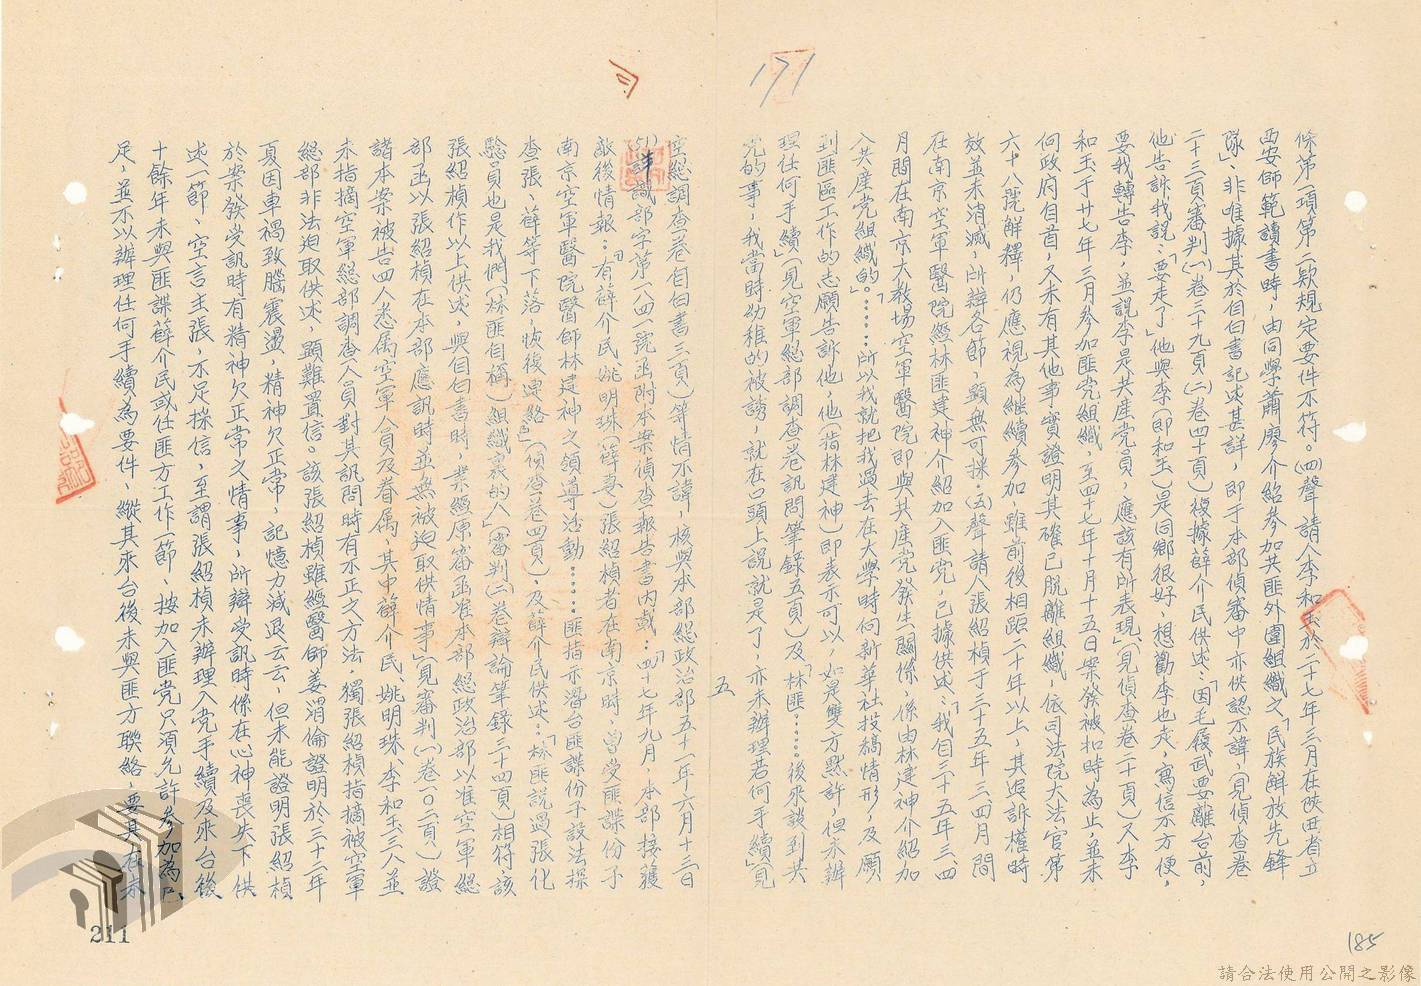 171
條第一項第二款規定要件不符。(四)聲請人李和玉於二十七年三月在陝西省立
西安師範讀書時，由同學蕭廖介紹參加共匪外圍組織之「民族解放先鋒
隊」非唯據其於自白書記述甚詳，即于本部偵審中亦供認不諱，(見偵查卷
二十三頁審判(一)卷三十九頁(二)卷四十頁)複據薛介民供述：「因毛履武要離台前，
他告訴我說：『要走了』他與李(即和玉)是同鄉很好，想勸李也走，寫信不方便，
要我轉告李，並說李是共產党員，應該有所表現」(見偵查卷二十頁)又李
和玉于廿七年三月參加匪党組織，至四十七年十月十五日案發被扣時為止，並未
向政府自首，又未有其他事實證明其確已脫離組織，依司法院大法官第
六十八號解釋，仍應視為繼續參加，雖前後相距二十年以上，其追訴權時
效並未消滅，所辯各節，顯無可採。(五)聲請人張紹楨于三十五年三四月間
在南京空軍醫院經林匪建神介紹加入匪党，已據供述：「我自三十五年三、四
月間在南京大教場空軍醫院即與共產党發生關係，係由林建神介紹加
入共產党組織的」……「所以我就把我過去在大學時向新華社投稿情形，及願
到匪區工作的志願告訴他，他(指林建神)即表示可以，如是雙方默許，但未辦
理任何手續」(見空軍總部調查卷訊問筆錄五頁)及「林匪……後來談到共
党的事，我當時幼稚的被誘，就在口頭上說就是了，亦未辦理若何手續」(見
五
空總調查卷自白書三頁)等情不諱，核與本部總政治部五十一年六月十三日
(51)詳識部字第一八四一號函附本案偵查報告書內載：「四十七年九月，本部接獲
敵後情報：『有薛介民姚明珠(薛妻)張紹楨者在南京時，曾受匪諜份子
南京空軍醫院醫師林建神之領導活動……匪指示潛台匪諜份子設法探
查張、薛等下落，恢復連絡』」(偵查卷四頁)，及薛介民供述：「林匪說過張化
驗員也是我們(林匪自稱)組織裏的人」(審判(二)卷辯論筆錄三十四頁)相符，該
張紹楨作以上供述，與自白書時，業經原審函准本部總政治部以准空軍總
部函以張紹楨在本部應訊時並無被迫取供情事」(見審判(一)卷一〇二頁)證
諸本案被告四人悉屬空軍人員及眷屬，其中薛介民、姚明珠、李和玉三人並
未指摘空軍總部調查人員對其訊問時有不正之方法，獨張紹楨指摘被空軍
總部非法迫取供述，顯難置信。該張紹楨雖經醫師姜渭倫證明於三十二年
夏因車禍致腦震盪，精神欠正常，記憶力減退云云，但未能證明張紹楨
於案發受訊時有精神欠正常之情事，所辯受訊時係在心神喪失下供
述一節、空言主張，不足採信，至謂張紹楨未辦理入党手續及來台後
十餘年未與匪諜薛介民或任匪方工作一節、按加入匪党只須允許參加為已
足，並不以辦理任何手續為要件，縱其來台後未與匪方聯絡，要具在未
211
185
請合法使用公開之影像